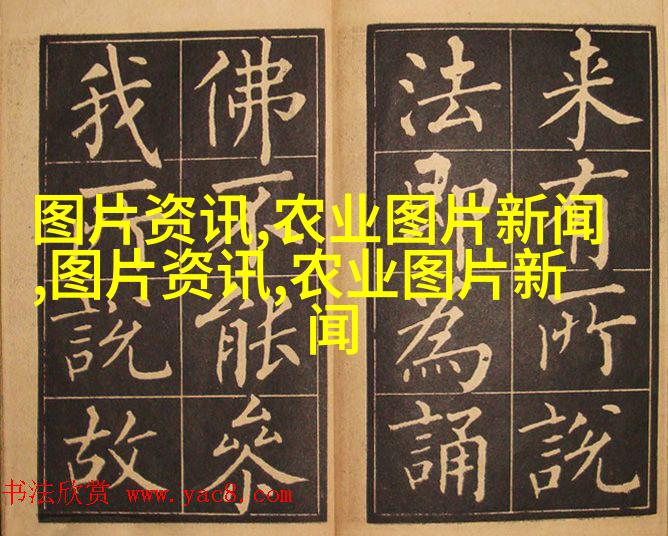 来有所說
法即為誦
佛不能叅
我所說故
图片资讯,农业图片新闻
,图片资讯,农业图片新
闻
书法欣赏 www.yac8.com